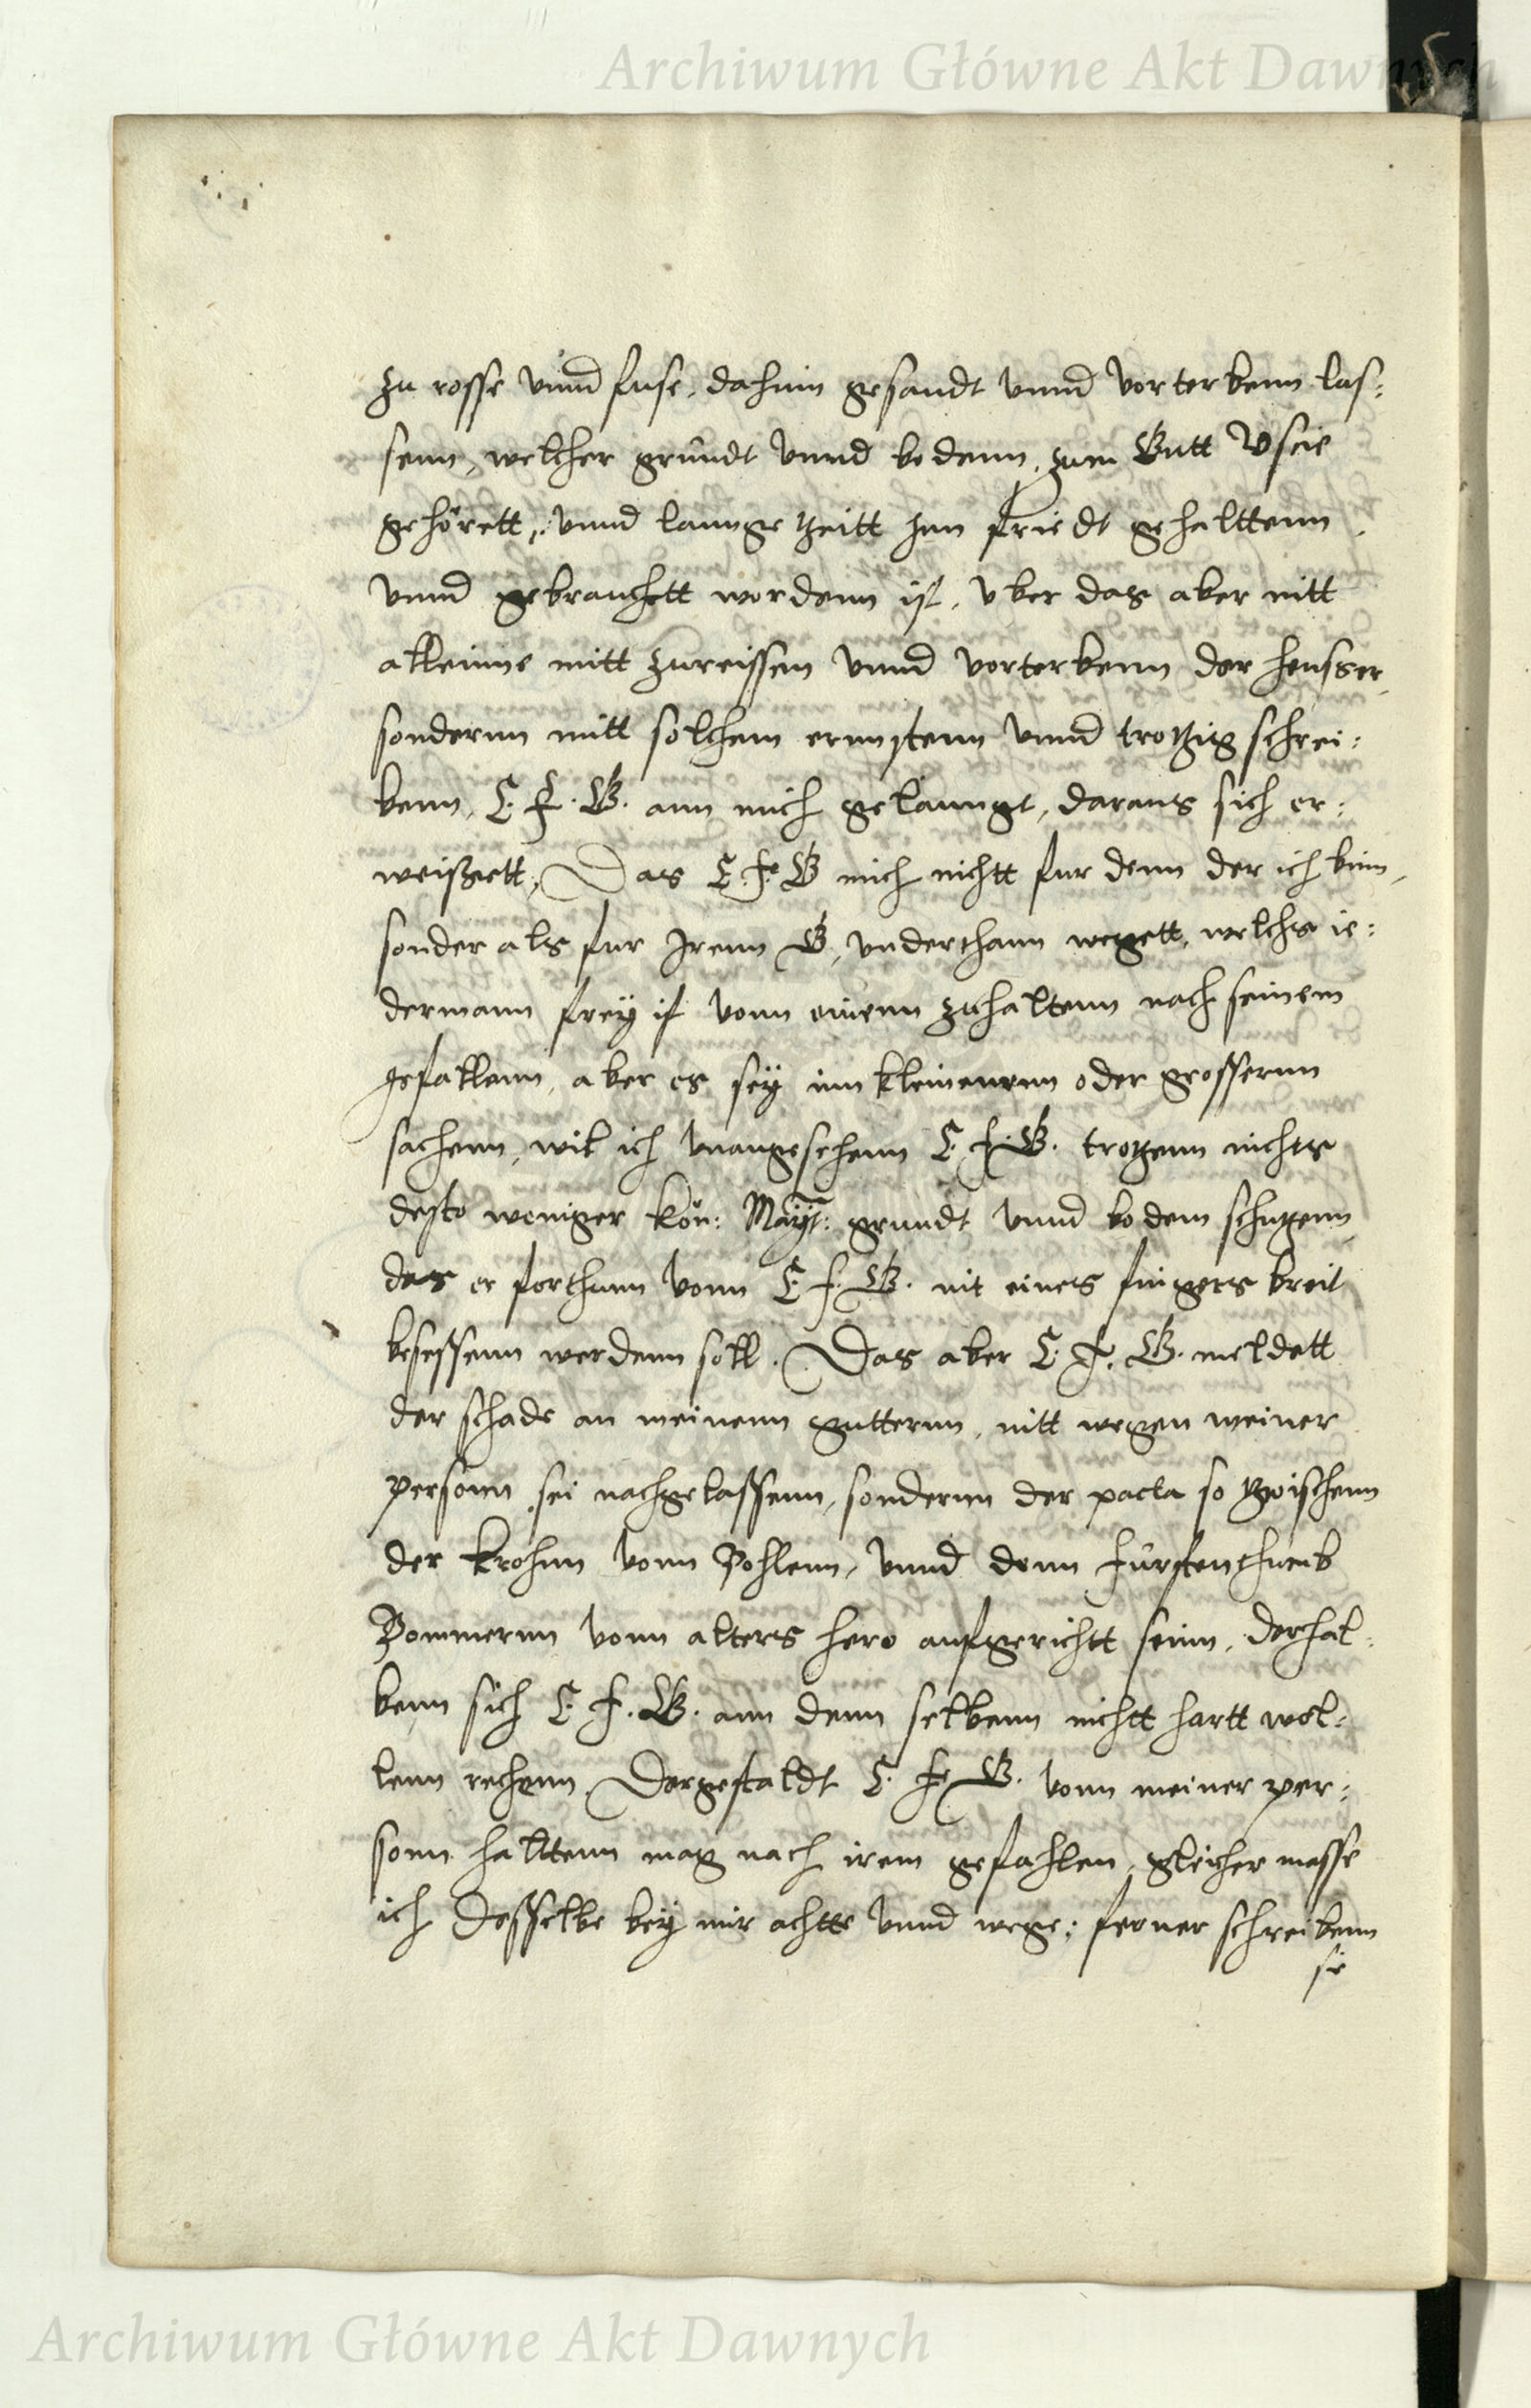 Archiwum Główne Akt Dawnych
zu rosse vnnd fuse, dahinn gesandt vnnd vorterbenn las:
senn, welcher grundt vnnd bodenn, zum Gutt Uscie
gehörett, vnnd lannge zeitt hen friedt gehalttenn
vnnd gebrauchett wordenn ist, vber das aber nitt
alleinne mitt zureissen vnnd vorterbenn der heusser,
sondernn mitt solchem ernnstenn vnnd trotzig schrei:
benn, E. F. G. ann mich gelanngt, daraus sich er:
weißett, Das E. F. G mich nichtt fur denn der ich binn,
sonder als fur Irenn G, vnderthann wegett, welchs ie:
dermann frey ist vonn einenn zuhaltenn nach seinem
gefallenn, aber es sey inn kleinerenn oder grossernn
sachenn, wil ich vnangesehenn E. F. G. trotzenn nichts
desto weniger Kön: Mayt: grundt vnnd bodem schutzenn,
das er forthann vonn E. F. G. nit eines fingers breit
besessenn werdenn soll. Das aber E. F. G. meldett
der schade an meinenn gutternn, nitt wegen meiner
personn sei nachgelassenn, sondernn der pacta so zwischenn
der Krohnn vonn Pohlenn, vnnd denn Fürstenthumb
Pommernn vonn alters hero aufgerichtt seinn, derhal:
benn sich E. F. G. ann denn selbenn nichtt hartt wol:
lenn rechenn, Dergestaldt E. F. G. vonn meiner per:
sonn halttenn mag nach irem gefahlen, gleicher masse
ich desselbe bey mir achtte vnnd wege: ferner schreibenn
sie
Archiwum Główne Akt Dawnych